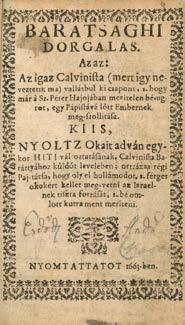 BARATSAGHI
DORGALAS.
Azaz:
Az igaz Calvinista (mert igy ne-
vezettik ma) vallásbul ki csapont, s. hogy
már à Sz. Péter Hajojában meritelen bémę-
rot, egy Pápistává lött Embernek
meg-szollitása.
KI IS,
NYOLTZ Okait adván egy-
kor HITI változtatásának, Calvinista Ba-
rátyához küldöt levelében: ottrázza régi
Paj-tátsa, hogy oly el hullámodot, s. ferges
okokért kellet meg-vetni az Izrael-
nek tiszta forrását, s. bé om-
lott kutra ment meriteni.
NYOMTATTATOT 1663-ben.